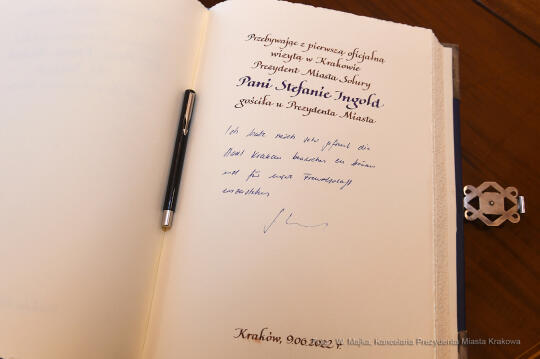 Przebywając z pierwszą oficjalną
wizytą w Krakowie
Prezydent Miasta Solury
Pani Stefanie Ingold
gościła u Prezydenta Miasta
Ich habe mich sehr gefreut die
Stadt Krakau besuchen zu können
und für unsere Freundschaft
Kraków, 9.06.2022 r.
W. Majka, Kancelaria Prezydenta Miasta Krakowa